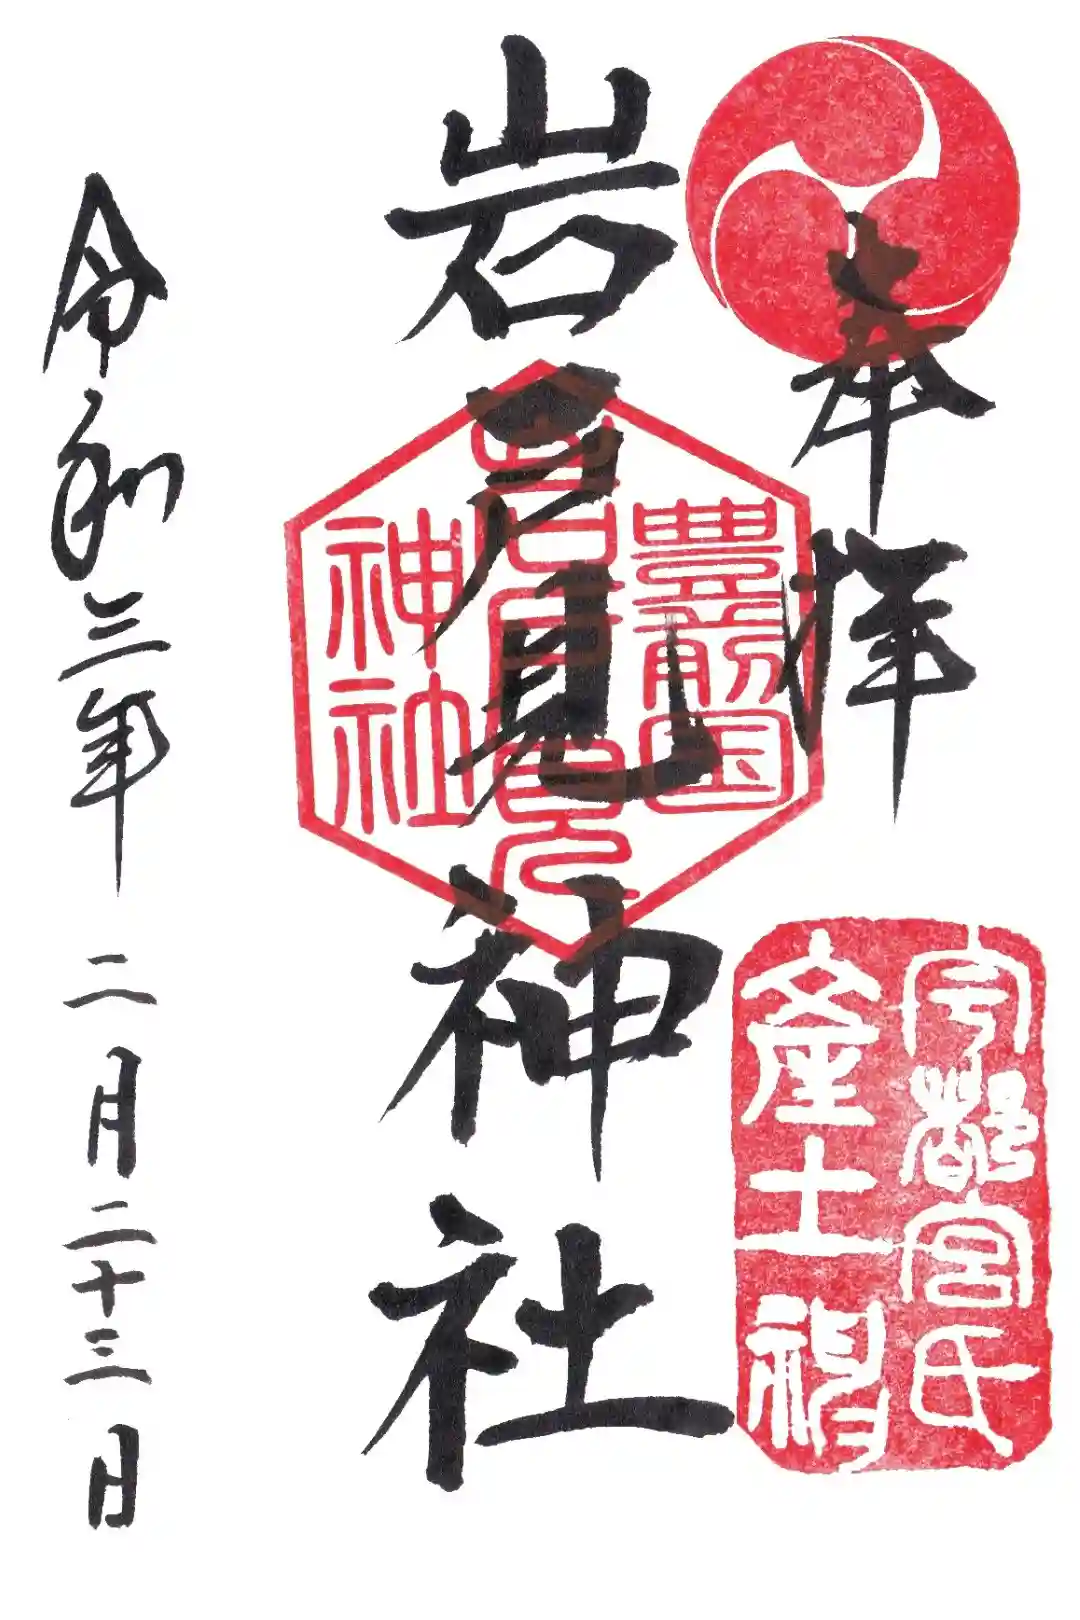 奉拝
宇都宮氏
産土神
岩戸見神社
豊前国
岩戸見
神社
令和三年二月二十三日